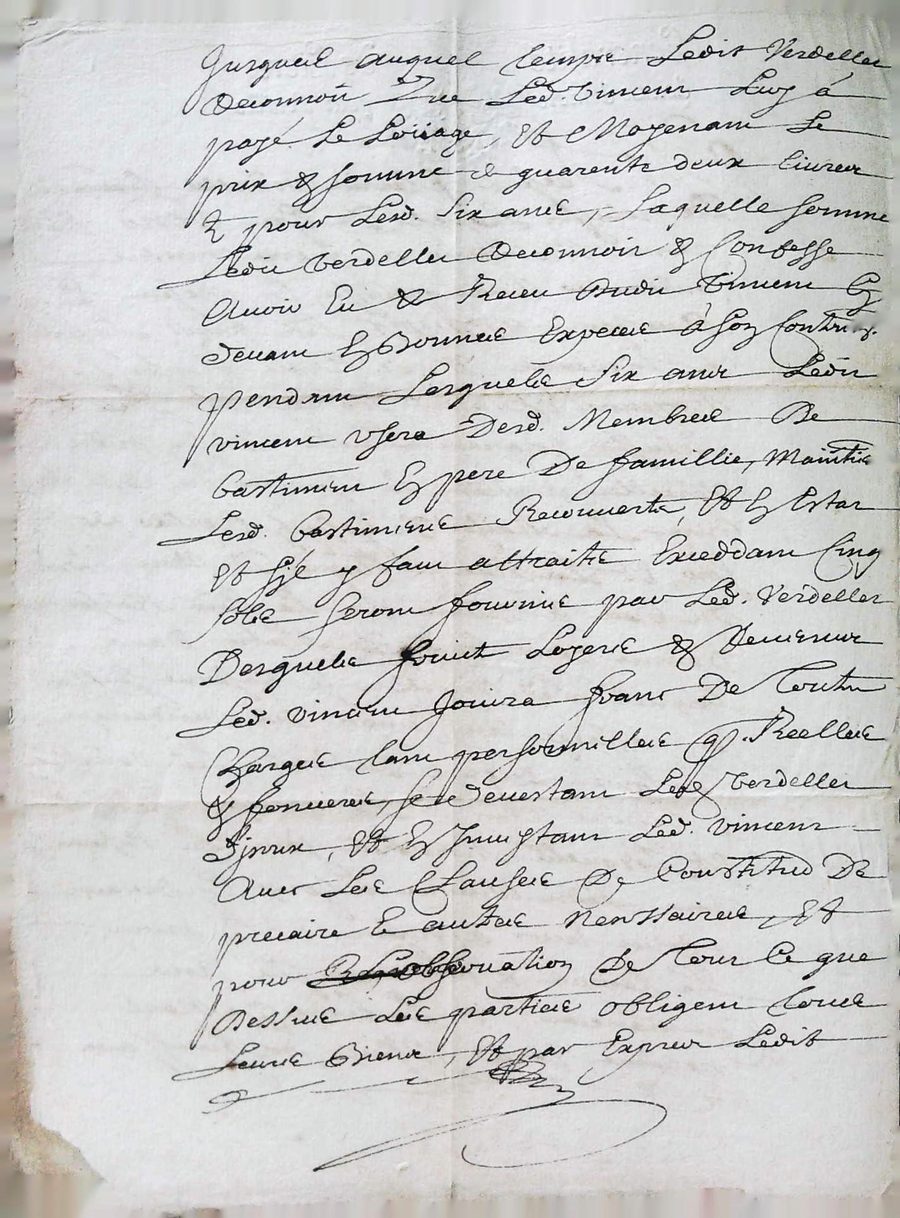 Jusqueil auquel temps Ledit Verdellet
Reconnoit que Led. Vincent Luy á
payé Le Loüage, Et Moyenant Le
prix & somme de quarente deux Livres
pour Lesd. six ans, Laquelle somme
Ledit Verdellet Reconnoit & Confesse
Avoir Eu & Receu Dudit Vincent Cy
devant En Bonnes Expeces à son Content
pendant Lesquels six ans Ledit
vincent usera Desd. Membres De
bastiment En pere De famillie, Maintie
Lesd. bastiments Recouverts, Et En Estat
Et s'il y faut attraits Exceddant Cinq
sols seront fournis par Led. Verdellet
Desquels Loyers &
Led. vincent Jouira franc De toutes
Charges tant personnelles q. Reelles
& foncieres, se devestant Led. Verdellet
Et En Investant Led. vincent
Avec Les Clauses De Constitud De
precaire & autres Nenssaires, Et
pour L'observation De tout Ce que
Dessus Les parties obligent tous
Leurs Biens, Et par Exprès Ledit